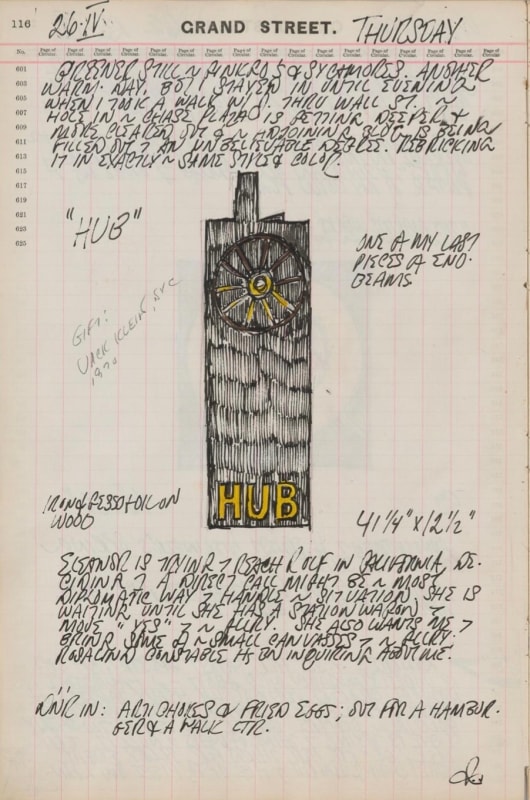 116 26·IV· GRAND STREET. THURSDAY
No. Page of Circular. Page of Circular. Page of Circular. Page of Circular. Page of Circular. Page of Circular. Page of Circular. Page of Circular. Page of Circular. Page of Circular. Page of Circular. Page of Circular. Page of Circular. Page of Circular.
601
603
605
607
609
611
613
615
617
619
621
623
625
GREENER STILL ~ GINKGOS & SYCAMORES. ANOTHER
WARM DAY. BUT I STAYED IN UNTIL EVENING
WHEN I TOOK A WALK THRU WALL ST. ~
HOLE IN ~ CHASE PLAZA IS GETTING DEEPER &
MORE CLEARED OUT & ~ ADJOINING BLDG IS BEING
FILLED OUT AN UNBELIEVABLE DEGREE. REBRICKING
IT IN EXACTLY ~ SAME STYLE & COLOR.
"HUB"
ONE OF MY LAST
PIECES OF END·
BEAMS
GIFT:
JACK KLEIN, NYC
1970
HUB
IRON & GESSO & OIL ON
WOOD
41 1/4" X 12 1/2"
ELEANOR IS TRYING REACH ROLF IN CALIFORNIA, DE·
CIDING A DIRECT CALL MIGHT BE ~ MOST
DIPLOMATIC WAY HANDLE ~ SITUATION. SHE IS
WAITING UNTIL SHE HAS A STATION WAGON
MOVE "YES" ~ GALLERY. SHE ALSO WANTS ME
BRING SOME OF ~ SMALL CANVASSES ~ GALLERY.
ROSALIND CONSTABLE HAS BEEN INQUIRING ABOUT ME.
DIN'R IN: ARTICHOKES & FRIED EGGS; OUT FOR A HAMBUR·
GER & A WALK